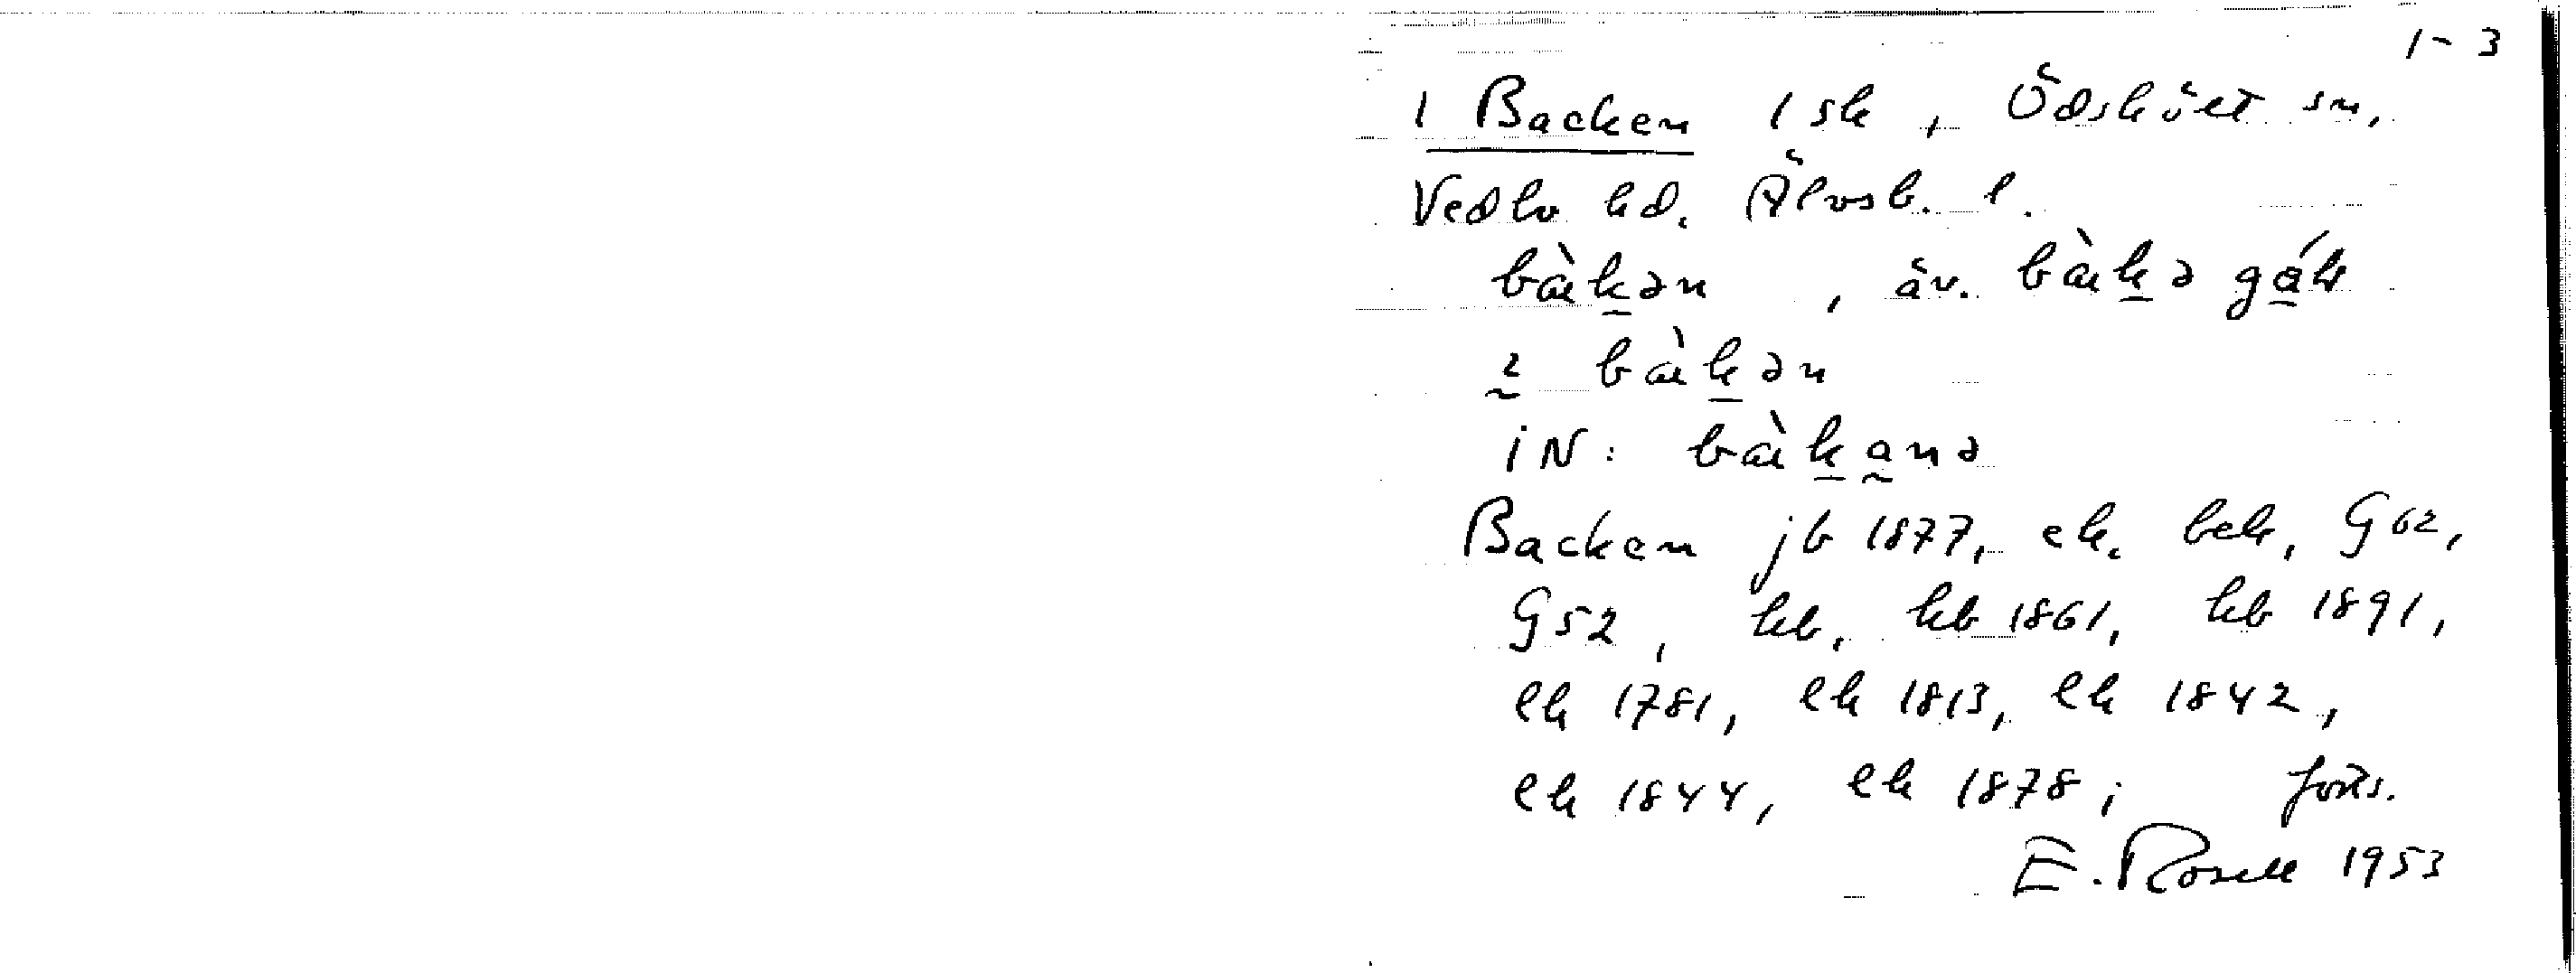 1-3
1 Backen 1 sk, Ödskölt sn,
Vedbo hd. Älvsb. l.
bàkən, äv. bàkə gál
i bàkən
iN: bàkanə
Backen jb 1877, ek. bek, G62,
G52, kb, kb 1861, kb 1891,
lk 1781, lk 1813, lk 1842,
lk 1844, lk 1878; forts.
E. Rosell 1953